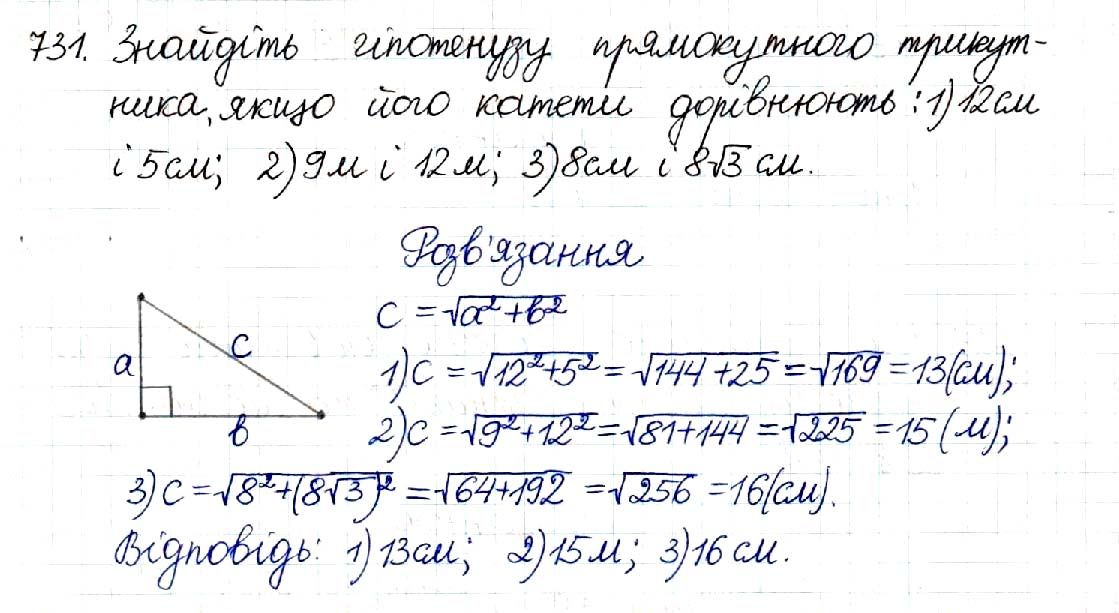 731. Знайдіть гіпотенузу прямокутного трикут-
ника, якщо його катети дорівнюють: 1) 12 см
і 5 см; 2) 9 м і 12 м; 3) 8 см і 8√3 см.
Розв'язання
c = √(a²+b²)
a
c
b
1) c = √(12²+5²) = √(144+25) = √169 = 13 (см);
2) c = √(9²+12²) = √(81+144) = √225 = 15 (м);
3) c = √(8²+(8√3)²) = √(64+192) = √256 = 16 (см).
Відповідь: 1) 13 см; 2) 15 м; 3) 16 см.